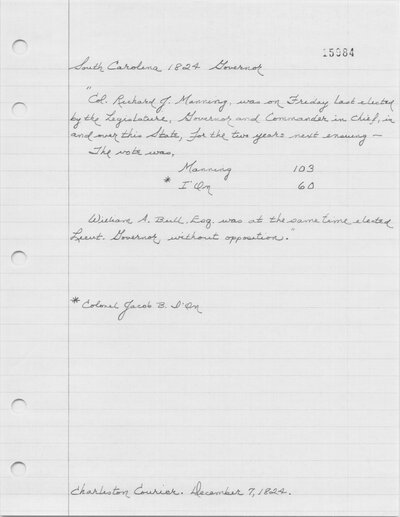 15984
South Carolina 1824 Governor
"Col. Richard J. Manning, was on Friday last elected
by the Legislature, Governor and Commander in Chief, in
and over this State, for the two years next ensuing —
The vote was,
Manning 103
* I'On 60
William A. Bull, Esq. was at the same time elected
Lieut. Governor without opposition."
* Colonel Jacob B. I'On
Charleston Courier. December 7, 1824.